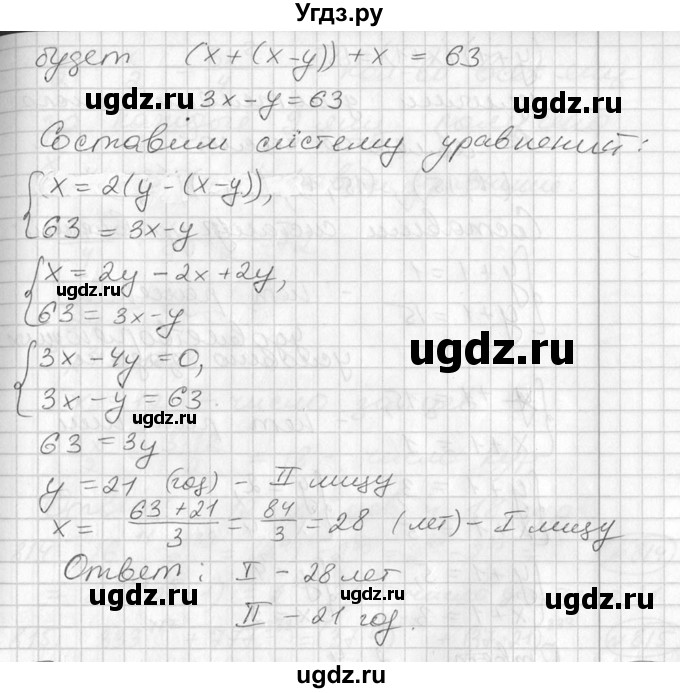 Угдз.ру
будет (x+(x-y))+x = 63
ugdz.ru ugdz.ru
3x-y=63
Составим систему уравнений:
{x = 2(y-(x-y)),
63 = 3x-y
{x = 2y-2x+2y,
ugdz.ru
63 = 3x-y
ugdz.ru
{3x-4y=0,
3x-y=63.
ugdz.ru
63 = 3y
y = 21 (год) - II лицу
x = (63+21)/3 = 84/3 = 28 (лет) - I лицу
Ответ: I - 28 лет
ugdz.ru ugdz.ru
II - 21 год.
ugdz.ru
ugdz.ru